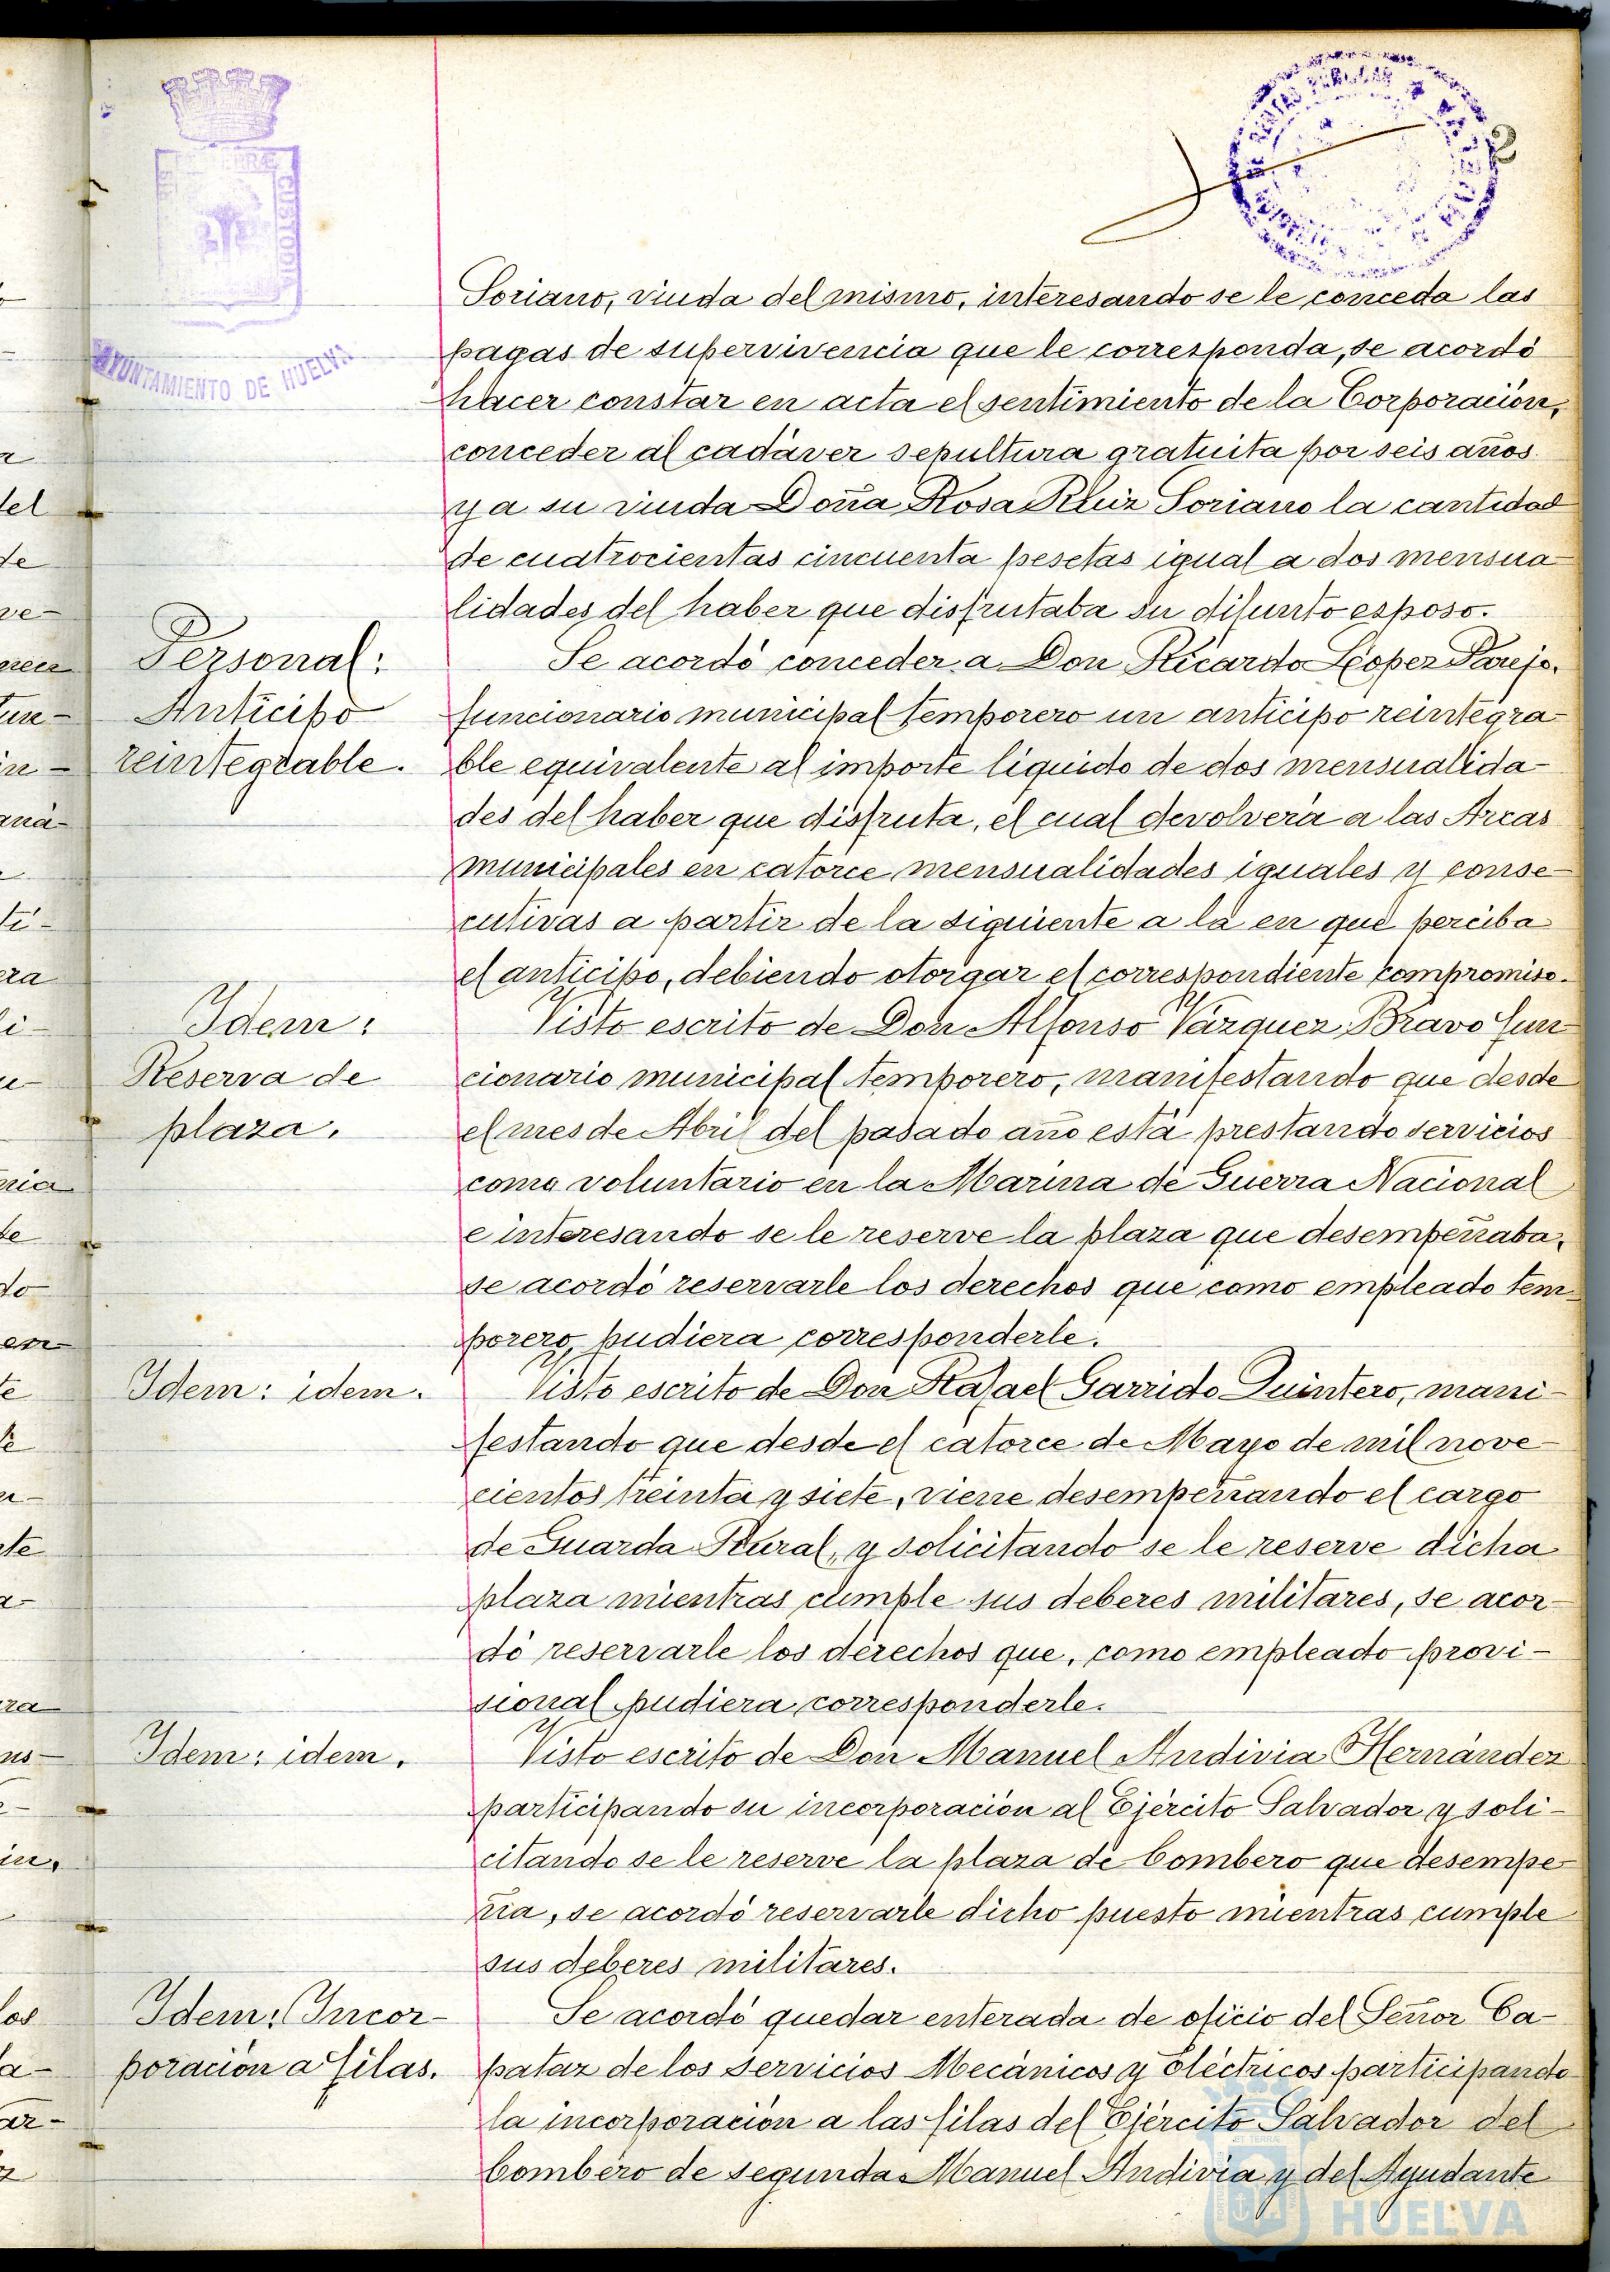 2
AYUNTAMIENTO DE HUELVA
Soriano, viuda del mismo, interesando se le conceda las
pagas de supervivencia que le corresponda, se acordó
hacer constar en acta el sentimiento de la Corporación,
conceder al cadáver sepultura gratuita por seis años
y a su viuda Doña Rosa Ruiz Soriano la cantidad
de cuatrocientas cincuenta pesetas igual a dos mensua-
lidades del haber que disfrutaba su difunto esposo.
Personal:
Anticipo
reintegrable.
Se acordó conceder a Don Ricardo López Parejo,
funcionario municipal temporero un anticipo reintegra-
ble equivalente al importe líquido de dos mensualida-
des del haber que disfruta, el cual devolverá a las Arcas
municipales en catorce mensualidades iguales y conse-
cutivas a partir de la siguiente a la en que perciba
el anticipo, debiendo otorgar el correspondiente compromiso.
Idem:
Reserva de
plaza.
Visto escrito de Don Alfonso Vázquez Bravo fun-
cionario municipal temporero, manifestando que desde
el mes de Abril del pasado año está prestando servicios
como voluntario en la Marina de Guerra Nacional
e interesando se le reserve la plaza que desempeñaba,
se acordó reservarle los derechos que como empleado tem-
porero, pudiera corresponderle.
Idem: idem.
Visto escrito de Don Rafael Garrido Quintero, mani-
festando que desde el catorce de Mayo de mil nove-
cientos treinta y siete, viene desempeñando el cargo
de Guarda Rural, y solicitando se le reserve dicha
plaza mientras cumple sus deberes militares, se acor-
dó reservarle los derechos que, como empleado provi-
sional pudiera corresponderle.
Idem: idem.
Visto escrito de Don Manuel Andivia Hernández
participando su incorporación al Ejército Salvador y soli-
citando se le reserve la plaza de bombero que desempe-
ña, se acordó reservarle dicho puesto mientras cumple
sus deberes militares.
Idem: Incor-
poración a filas.
Se acordó quedar enterada de oficio del Señor Ca-
pataz de los servicios Mecánicos y Eléctricos participando
la incorporación a las filas del Ejército Salvador del
bombero de segunda Manuel Andivia y del Ayudante
HUELVA